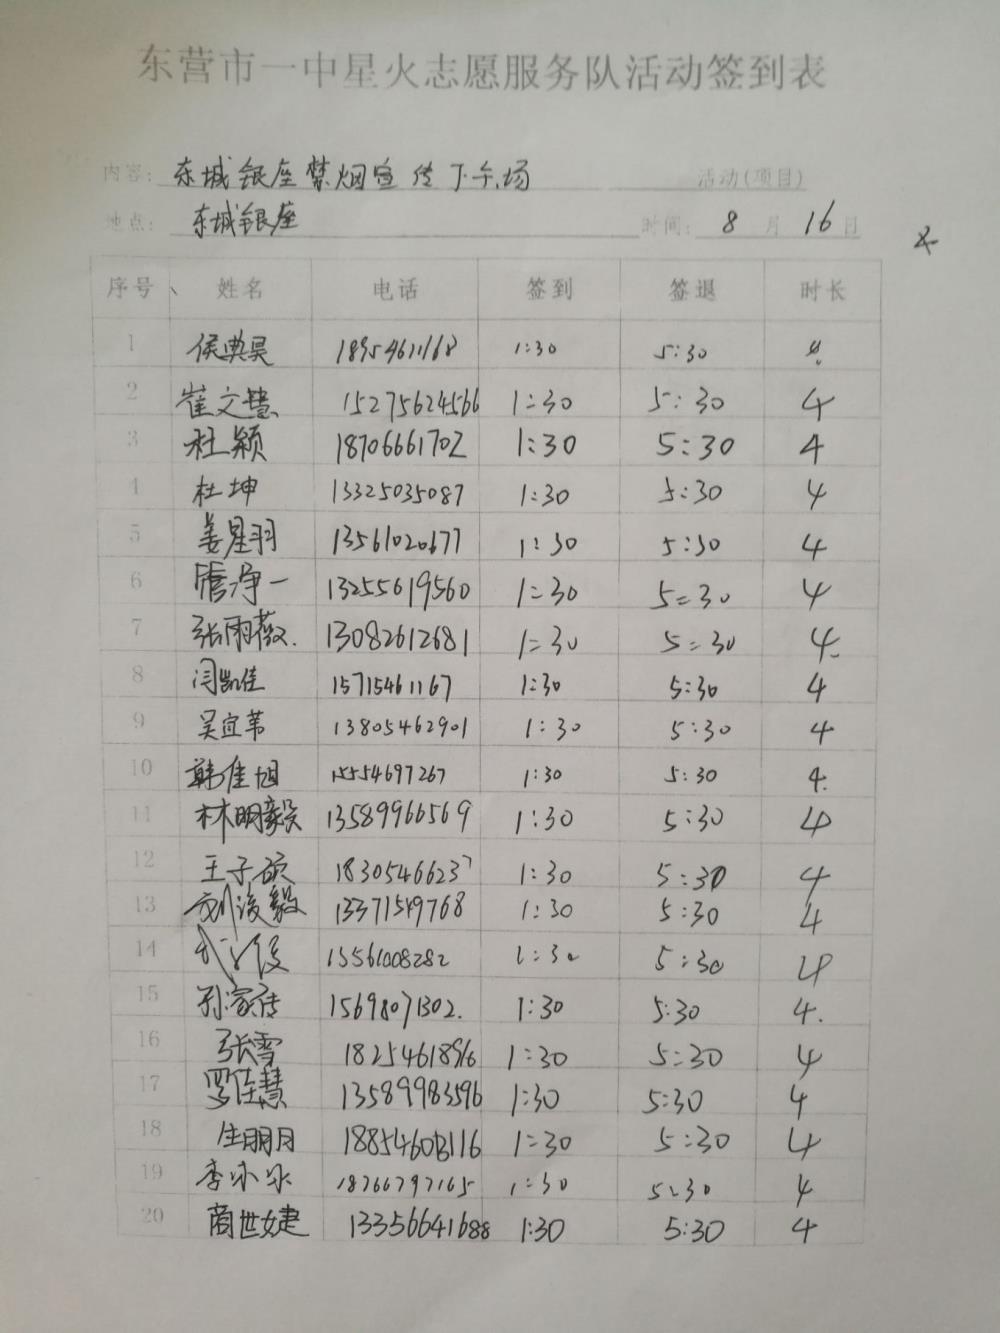 东营市一中星火志愿服务队活动签到表
内容: 东城银座禁烟宣传下午场 活动(项目)
地点: 东城银座 时间: 8 月 16 日
序号 姓名 电话 签到 签退 时长
1 侯典昊 18954611168 1:30 5:30 4.
2 崔文慧 15275624566 1:30 5:30 4
3 杜颖 18706661702 1:30 5:30 4
4 杜坤 13325035087 1:30 5:30 4
5 姜星羽 13561020677 1:30 5:30 4
6 唐净一 13255619560 1:30 5:30 4
7 张雨薇. 13082612681 1:30 5:30 4.
8 闫凯佳 15715461167 1:30 5:30 4
9 吴宜苇 13805462901 1:30 5:30 4
10 韩佳旭 15554697267 1:30 5:30 4.
11 林明毅 13589966569 1:30 5:30 4
12 王子硕 18305466237 1:30 5:30 4
13 刘浚毅 13371549768 1:30 5:30 4
14 15561008282 1:30 5:30 4
15 孙家传 15698071302. 1:30 5:30 4.
16 张雪 18254618916 1:30 5:30 4
17 罗佳慧 13589983596 1:30 5:30 4
18 生明月 1:30 5:30 4
19 李冰冰 18766797165 1:30 5:30 4
20 商世婕 13356641688 1:30 5:30 4